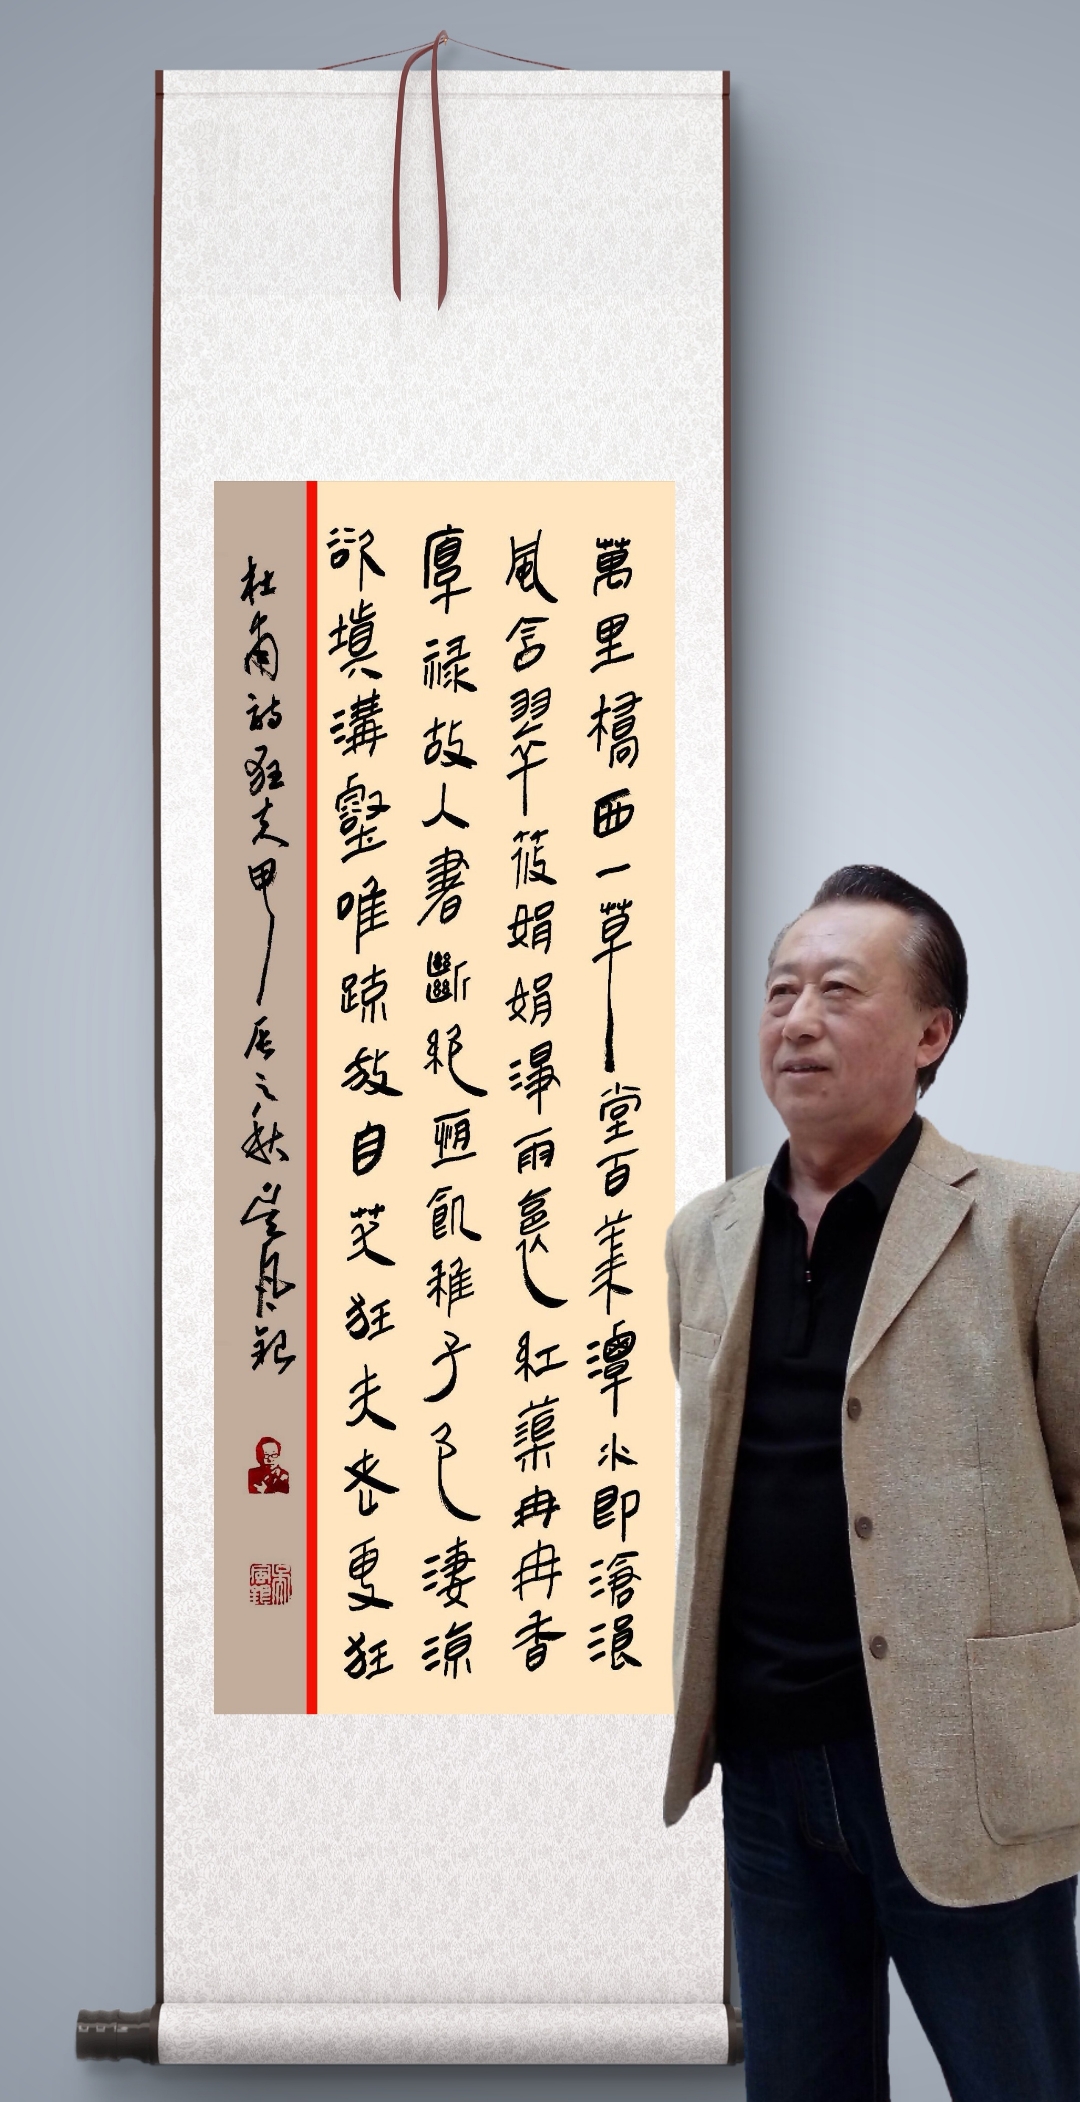 萬里橋西一草堂百花潭水即滄浪
風含翠筱娟娟淨雨裛紅蕖冉冉香
厚祿故人書斷絕恆飢稚子色淒涼
欲填溝壑唯疎放自笑狂夫老更狂
杜甫詩狂夫甲辰之秋